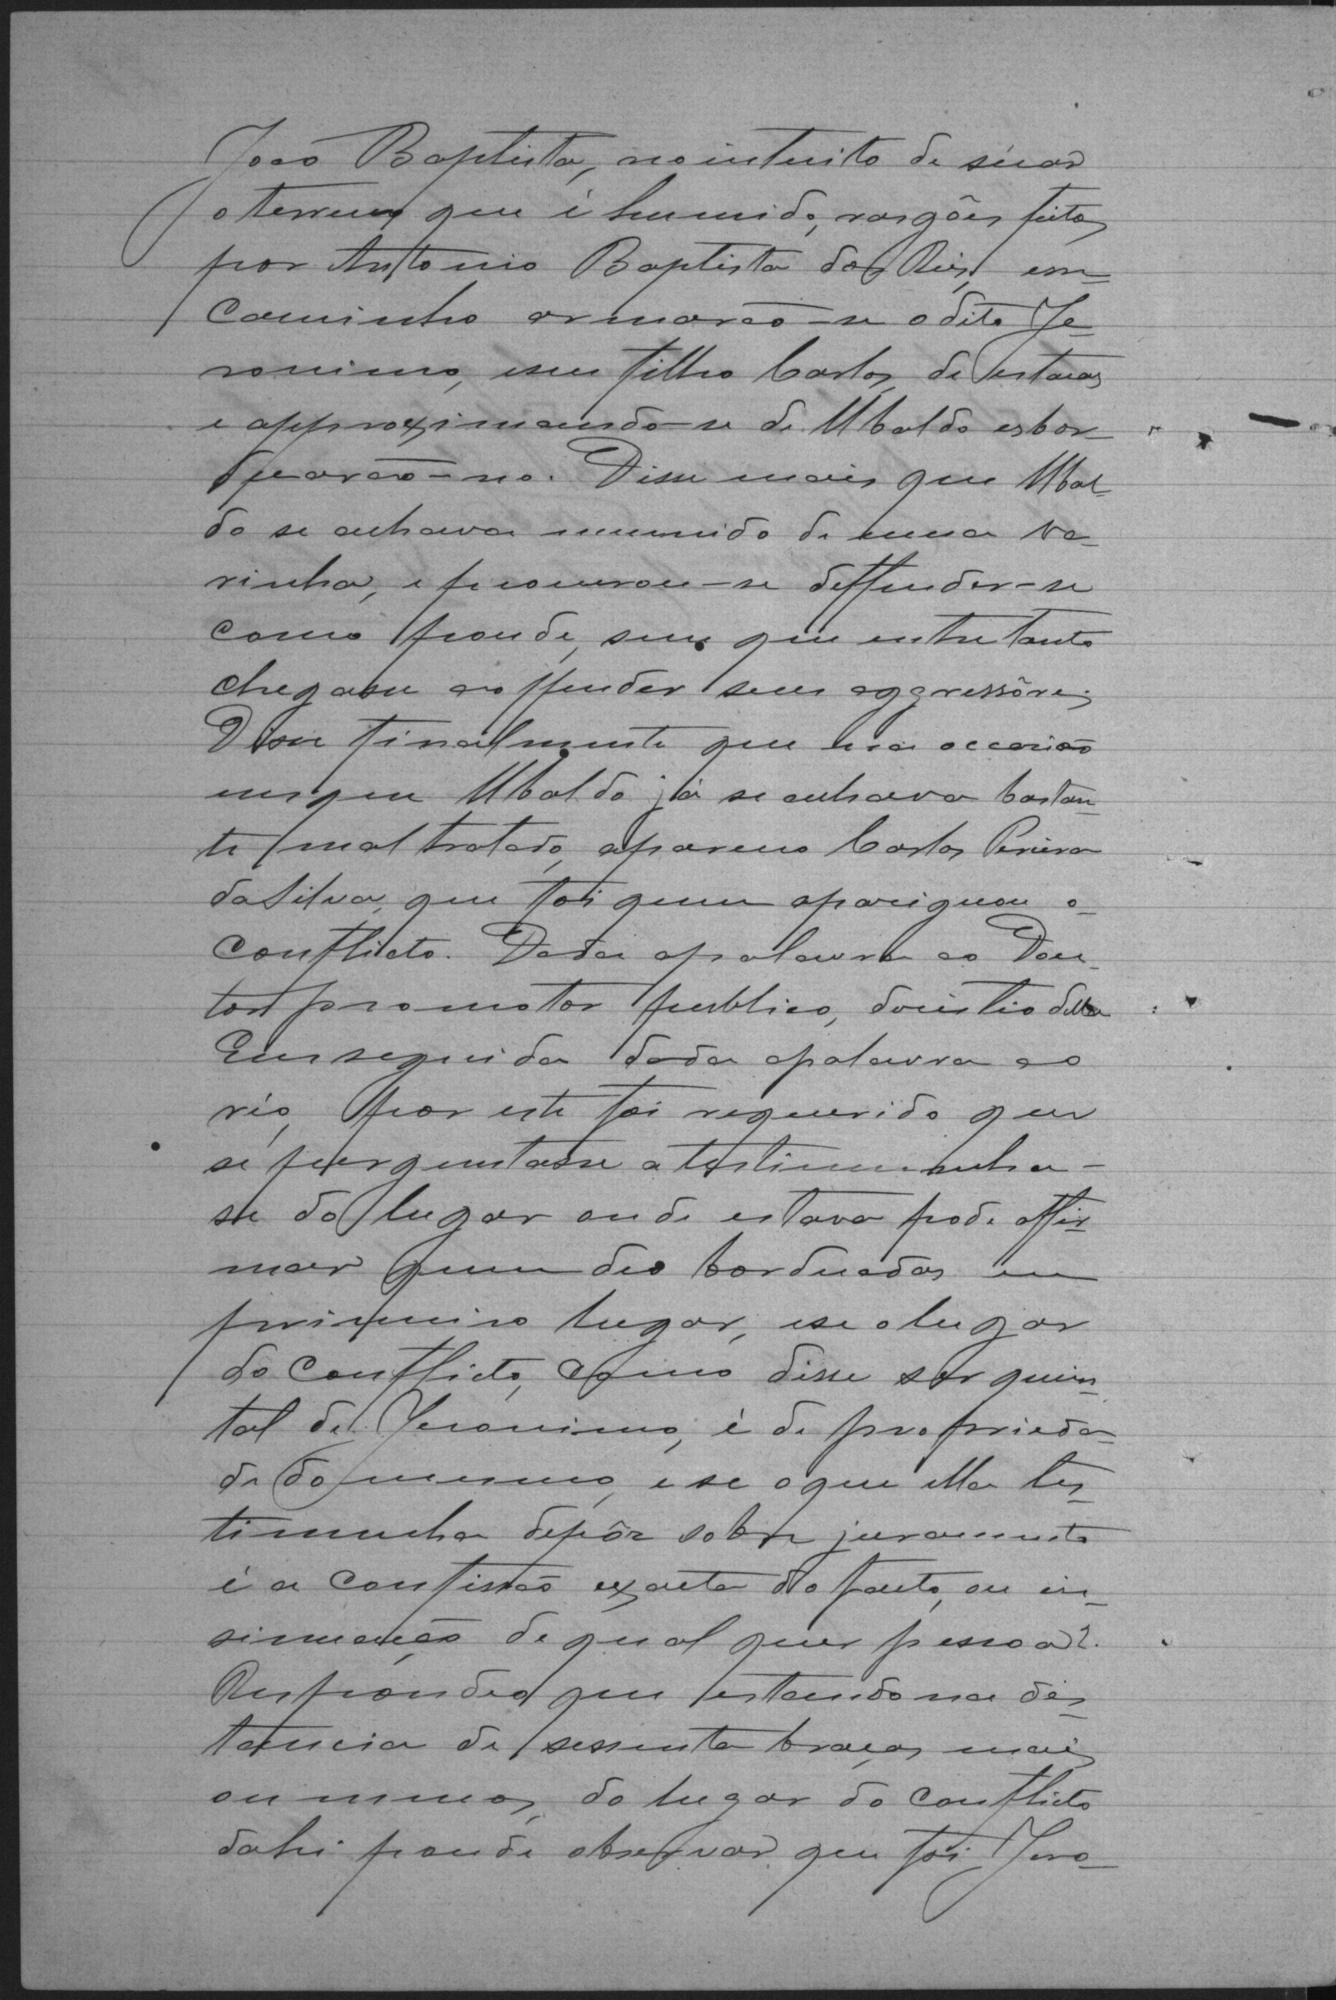 João Baptista, no intuito de sicar
o terreno que é humido, rasgões feitos
por Antonio Baptista dos Reis, em
caminho armarão-se o dito Je-
ronimo, e seu filho Carlos, de estacas
e approximando-se de Ubaldo esbor-
duarão-no. Disse mais que Ubal-
do se achava munido de uma va-
rinha, e procurou-se deffender-se
como poude, sem que entretanto
chegasse a offender seus aggressôres
Disse finalmente que na occasião
em que Ubaldo já se achava bastan-
te maltratado, apareceo Carlos Pereira
da Silva, que foi quem apasiguou o
conflicto. Dada a palavra ao Dou-
tor promotor publico, desistio della
Em seguida dada a palavra ao
réo, por este foi requerido que
se perguntasse a testimunha -
se do lugar onde estava pode affir-
mar quem deo borduadas em
primeiro lugar, e se o lugar
do conflicto, como disse ser quin-
tal de Jeronimo, é de proprieda-
de do mesmo, e se o que ella tes-
timunha depôz sobre juramento
é a confissão exacta do facto, ou in-
sinuação de qual quer pessoa?
Respondeo que estando na dis-
tancia de sessenta braças mais
ou menos, do lugar do conflicto
dahi poude observar que foi Jero-